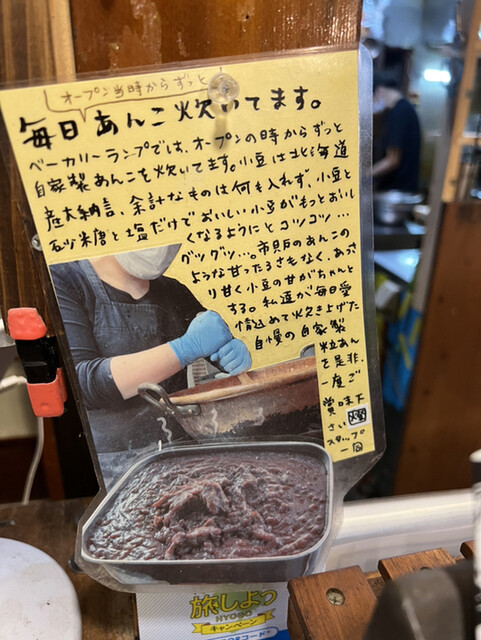 オープン当時からずっと
毎日あんこ炊いてます。
ベーカリーランプでは、オープンの時からずっと
自家製あんこを炊いています。小豆は北海道
産大納言、余計なものは何も入れず、小豆と
砂糖と塩だけでおいしい小豆がもっとおいし
くなるようにとコツコツ…
グツグツ…。市販のあんこの
ような甘ったるさもなく、あっさ
り甘く小豆の甘がちゃんと
する。私達が毎日愛
情込めて炊き上げた
自慢の自家製
粒あん
を是非
一度ご
賞味下
さい
スタッフ
一同
旅しよっ
HYOGO
キャンペーン